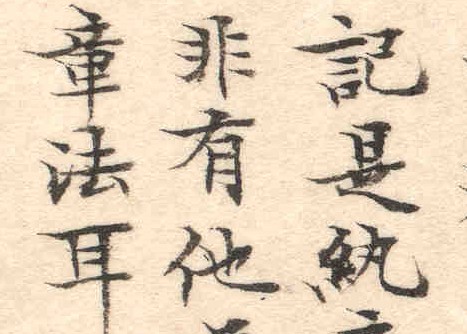 記是紈
非有他
章法耳